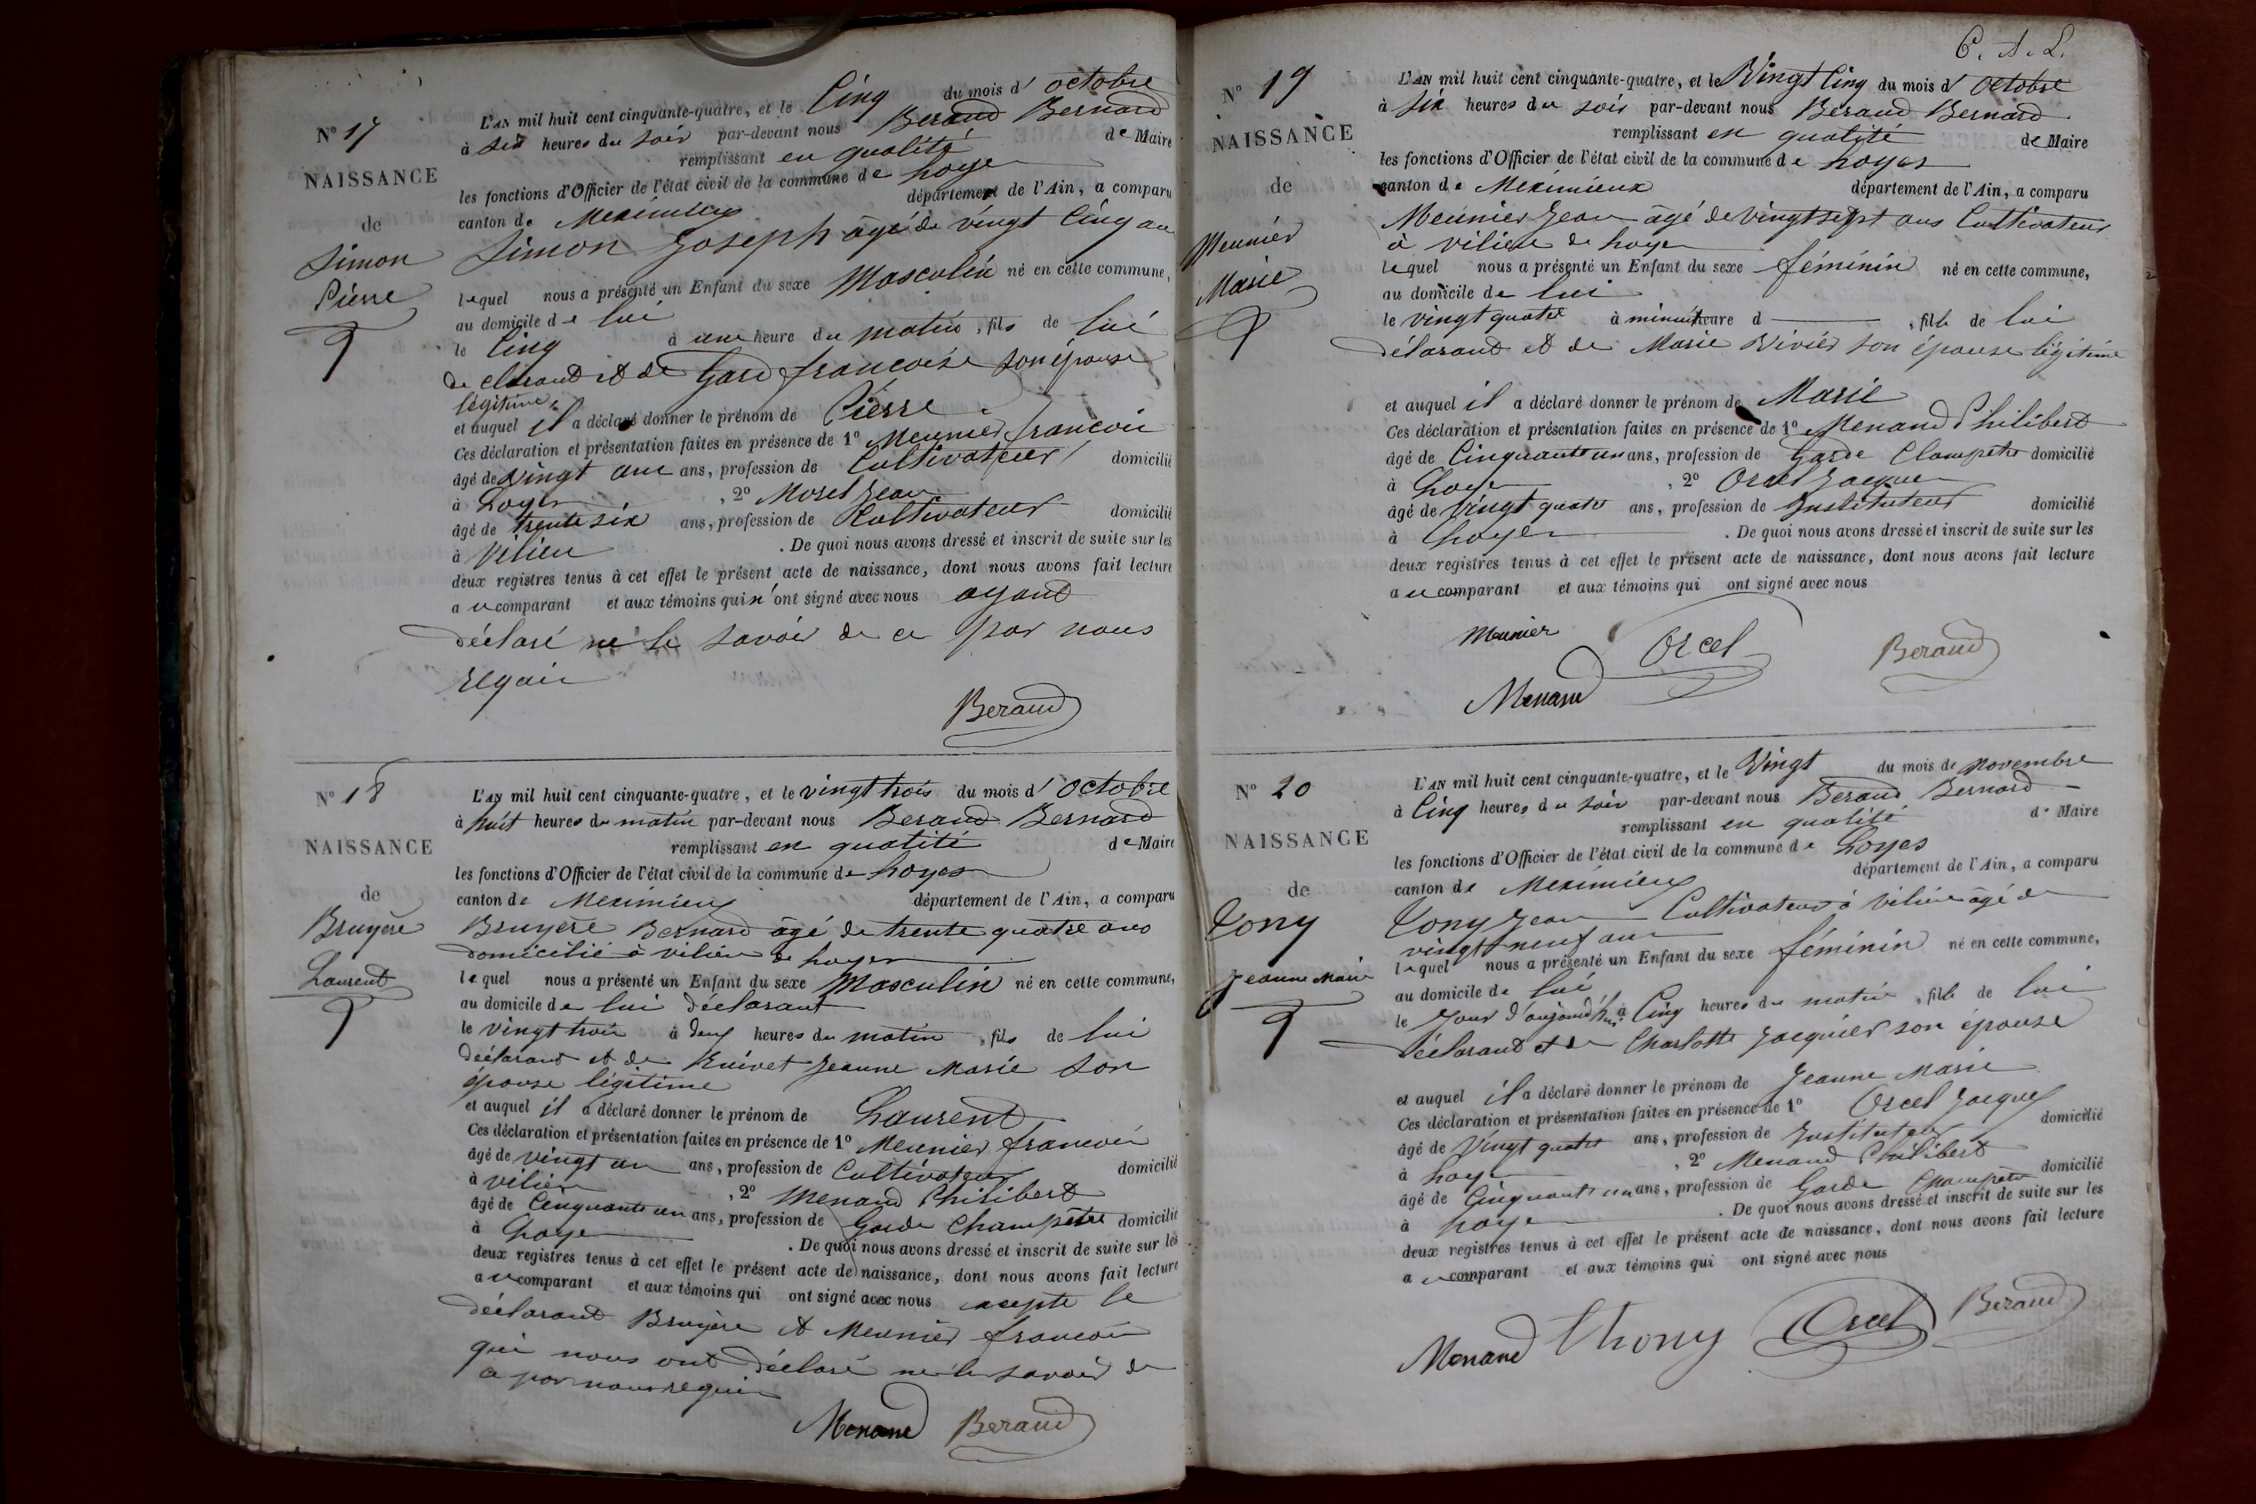 N° 17
NAISSANCE
de
Simon
Pierre
L'AN mil huit cent cinquante-quatre, et le Cinq du mois d' octobre
à six heures du soir par-devant nous Beraud Bernard
remplissant en qualité de Maire
les fonctions d'Officier de l'état civil de la commune de Loyes
canton de Meximieux département de l'Ain, a comparu
Simon Joseph âgé de vingt Cinq an
lequel nous a présenté un Enfant du sexe Masculin né en cette commune,
au domicile de lui
le Cinq à une heure du matin, fils de lui
declarant et de Gard francoise son épouse
légitime
et auquel il a déclaré donner le prénom de Pierre
Ces déclaration et présentation faites en présence de 1° Meunier francois
âgé de vingt un ans, profession de Cultivateur domicilié
à Loyes, 2° Morel Jean
âgé de trente six ans, profession de Cultivateur domicilié
à Vilieu. De quoi nous avons dressé et inscrit de suite sur les
deux registres tenus à cet effet le présent acte de naissance, dont nous avons fait lecture
au comparant et aux témoins qui n'ont signé avec nous ayant
déclaré ne le savoir de ce par nous
requis
Beraud
N° 18
NAISSANCE
de
Bruyère
Laurent
L'AN mil huit cent cinquante-quatre, et le vingt trois du mois d' octobre
à huit heures du matin par-devant nous Beraud Bernard
remplissant en qualité de Maire
les fonctions d'Officier de l'état civil de la commune de Loyes
canton de Meximieux département de l'Ain, a comparu
Bruyère Bernard âgé de trente quatre ans
domicilié à vilieu de Loyes
lequel nous a présenté un Enfant du sexe Masculin né en cette commune,
au domicile de lui déclarant
le vingt trois à deux heures du matin, fils de lui
déclarant et de Jeanne Marie son
épouse légitime
et auquel il a déclaré donner le prénom de Laurent
Ces déclaration et présentation faites en présence de 1° Meunier francois
âgé de vingt un ans, profession de Cultivateur domicilié
à vilieu, 2° Menand Philibert
âgé de Cinquante un ans, profession de Garde Champêtre domicilié
à Loyes. De quoi nous avons dressé et inscrit de suite sur les
deux registres tenus à cet effet le présent acte de naissance, dont nous avons fait lecture
au comparant et aux témoins qui ont signé avec nous excepté le
déclarant Bruyère et Meunier francois
qui nous ont déclaré ne le savoir de
ce par nous requis
Menand Beraud
C. A. L.
N° 19
NAISSANCE
de
Meunier
Marie
L'AN mil huit cent cinquante-quatre, et le Vingt Cinq du mois d' octobre
à six heures du soir par-devant nous Beraud Bernard
remplissant en qualité de Maire
les fonctions d'Officier de l'état civil de la commune de Loyes
canton de Meximieux département de l'Ain, a comparu
Meunier Jean âgé de vingt sept ans Cultivateur
à vilieu de Loyes
lequel nous a présenté un Enfant du sexe féminin né en cette commune,
au domicile de lui
le vingt quatre à minuit heure d, fille de lui
déclarant et de Marie Vivier son épouse légitime
et auquel il a déclaré donner le prénom de Marie
Ces déclaration et présentation faites en présence de 1° Menand Philibert
âgé de Cinquante un ans, profession de Garde Champetre domicilié
à Loyes, 2° Orcel Jacques
âgé de Vingt quatre ans, profession de Instituteur domicilié
à Loyes. De quoi nous avons dressé et inscrit de suite sur les
deux registres tenus à cet effet le présent acte de naissance, dont nous avons fait lecture
au comparant et aux témoins qui ont signé avec nous
Meunier Orcel Beraud
Menand
N° 20
NAISSANCE
de
Tony
Jeanne Marie
L'AN mil huit cent cinquante-quatre, et le Vingt du mois de novembre
à Cinq heures du soir par-devant nous Beraud Bernard
remplissant en qualité de Maire
les fonctions d'Officier de l'état civil de la commune de Loyes
canton de Meximieux département de l'Ain, a comparu
Tony Jean Cultivateur à Vilieu âgé de
vingt neuf ans
lequel nous a présenté un Enfant du sexe féminin né en cette commune,
au domicile de lui
le jour d'aujourd'hui à Cinq heures du matin, fille de lui
déclarant et de Charlotte Jacquier son épouse
et auquel il a déclaré donner le prénom de Jeanne Marie
Ces déclaration et présentation faites en présence de 1° Orcel Jacques
âgé de Vingt quatre ans, profession de Instituteur domicilié
à Loyes, 2° Menand Philibert
âgé de Cinquante un ans, profession de Garde Champetre domicilié
à Loyes. De quoi nous avons dressé et inscrit de suite sur les
deux registres tenus à cet effet le présent acte de naissance, dont nous avons fait lecture
au comparant et aux témoins qui ont signé avec nous
Menand Thony Orcel Beraud